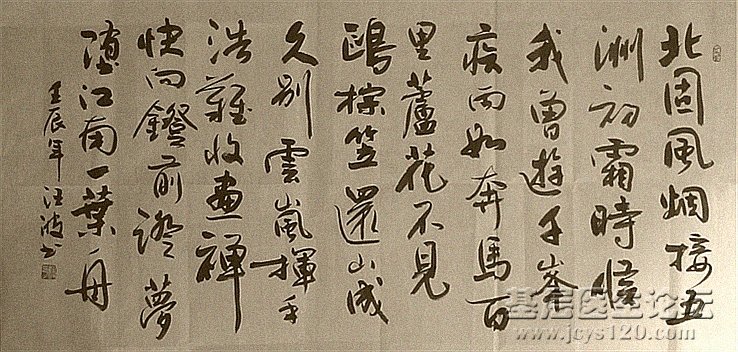 北固風烟接五
洲初霜時憶
我曾遊千峯
疾雨如奔馬百
里蘆花不見
鷗棕笠還山成
久別雲嵐揮手
浩難收畫禪
快向鐙前證夢
江南一葉舟
壬辰年汪波书
基层医生论坛
www.jcys120.com